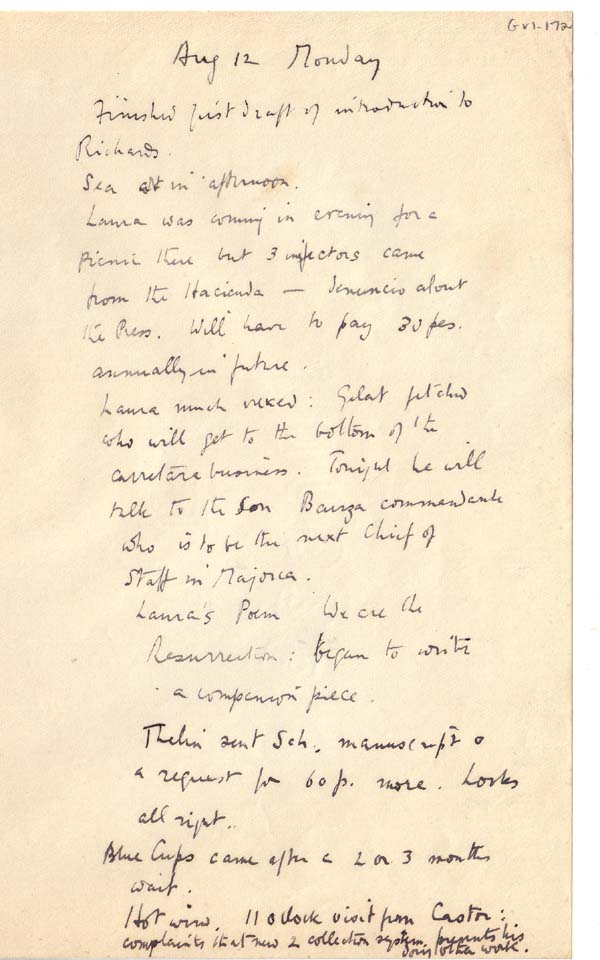 GV1-172
Aug 12 Monday
Finished first draft of introduction to
Richards.
Sea at in afternoon.
Laura was coming in evening for a
picnic there but 3 inspectors came
from the Hacienda — denuncio about
the Press. Will have to pay 30 pes.
annually in future.
Laura much vexed: Gelat fetched
who will get to the bottom of the
carretera business. Tonight he will
talk to the Son Bauza commandante
who is to be the next Chief of
Staff in Majorca.
Laura's Poem We are the
Resurrection: began to write
a companion piece.
Thelin sent Sch. manuscript &
a request for 60 p. more. Looks
all right.
Blue Cups came after a 2 or 3 months
wait.
Hot wind. 11 oclock visit from Castor:
complaints that new 2 collection system prevents his
doing other work.